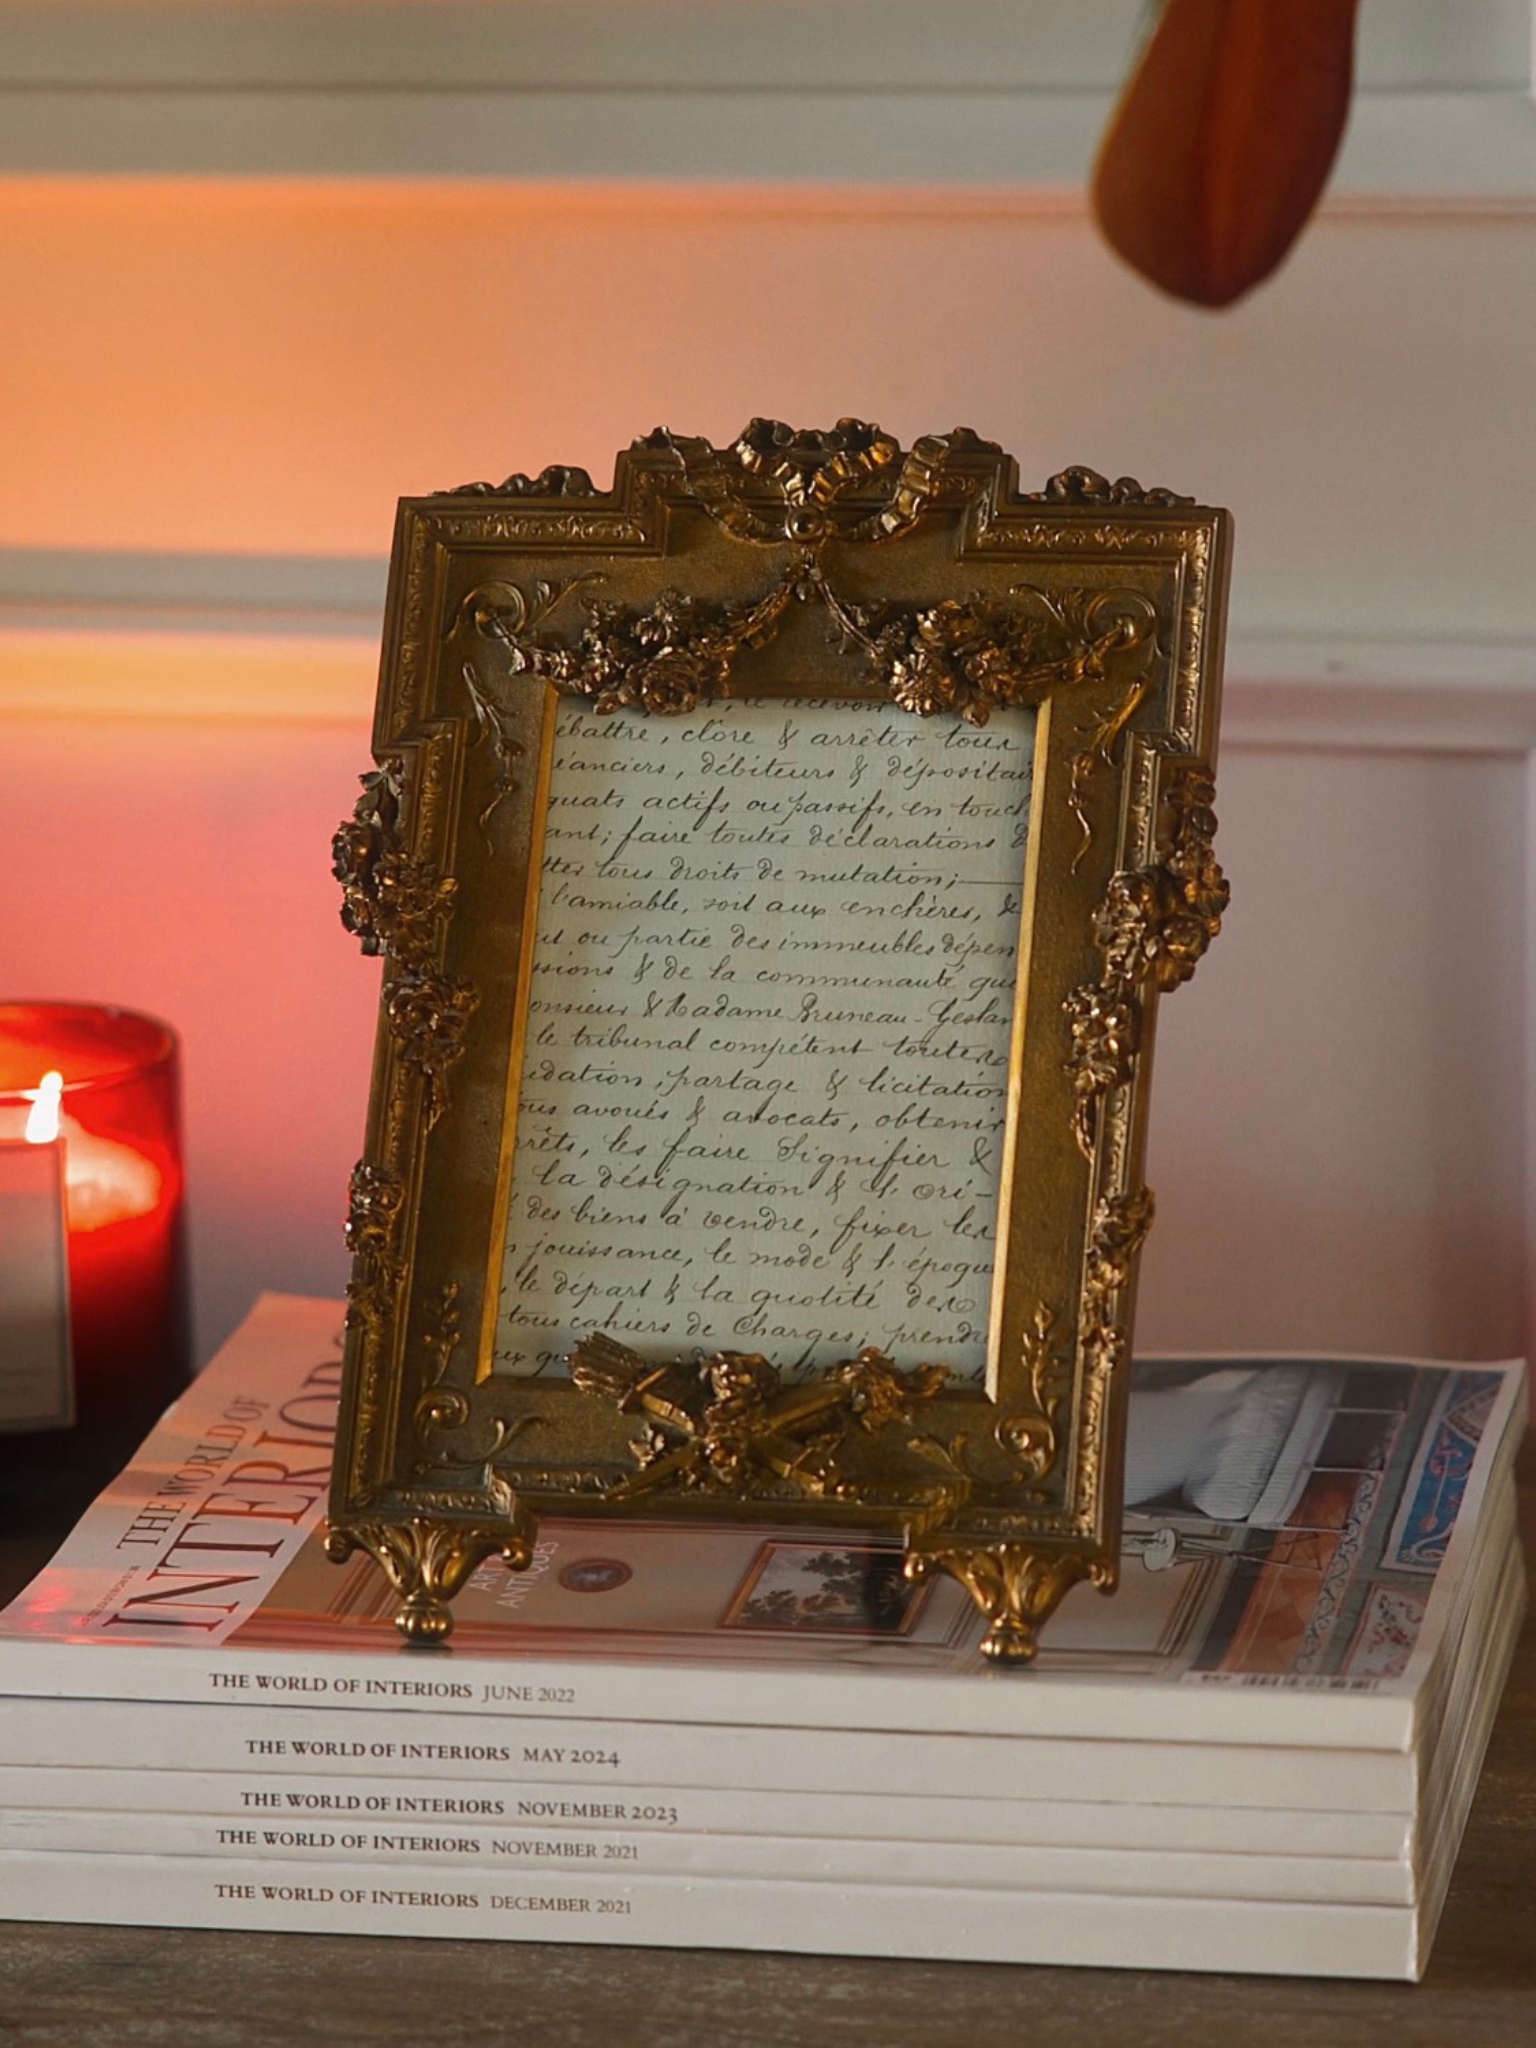 le recevoir
ébattre, clore & arrêter tous
éanciers, débiteurs & dépositair
quats actifs ou passifs, en touch
ant; faire toutes déclarations d
tter tous droits de mutation;
l'amiable, soit aux enchères, &
ut ou partie des immeubles dépen
ssions & de la communauté qui
onsieur & Madame Bruneau-Geslan
le tribunal compétent toutes
idation, partage & licitation
ous avoués & avocats, obtenir
rrêts, les faire signifier &
la désignation & l'ori-
des biens à vendre, fixer les
jouissance, le mode & l'époque
, le départ & la quotité des
tous cahiers de Charges; prendre
THE WORLD OF
INTERIORS
ANTIQUES
THE WORLD OF INTERIORS JUNE 2022
THE WORLD OF INTERIORS MAY 2024
THE WORLD OF INTERIORS NOVEMBER 2023
THE WORLD OF INTERIORS NOVEMBER 2021
THE WORLD OF INTERIORS DECEMBER 2021